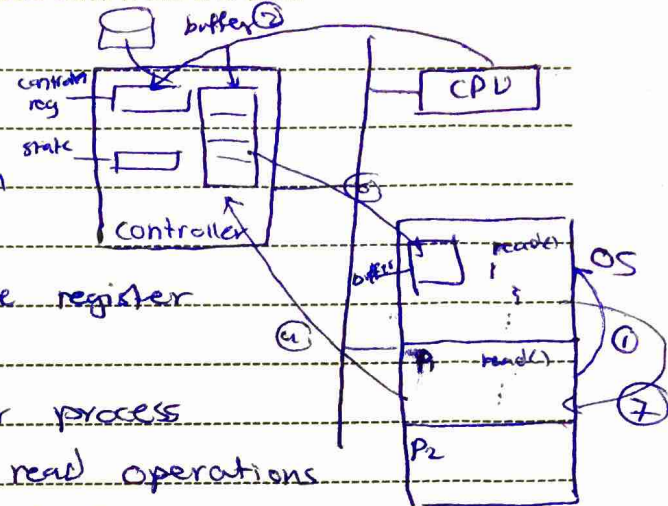 buffer ②
control
reg
CPU
state
controller
⑥
buffer
read()
OS
e register
④
①
P1 read()
r process
⑦
P2
read operations